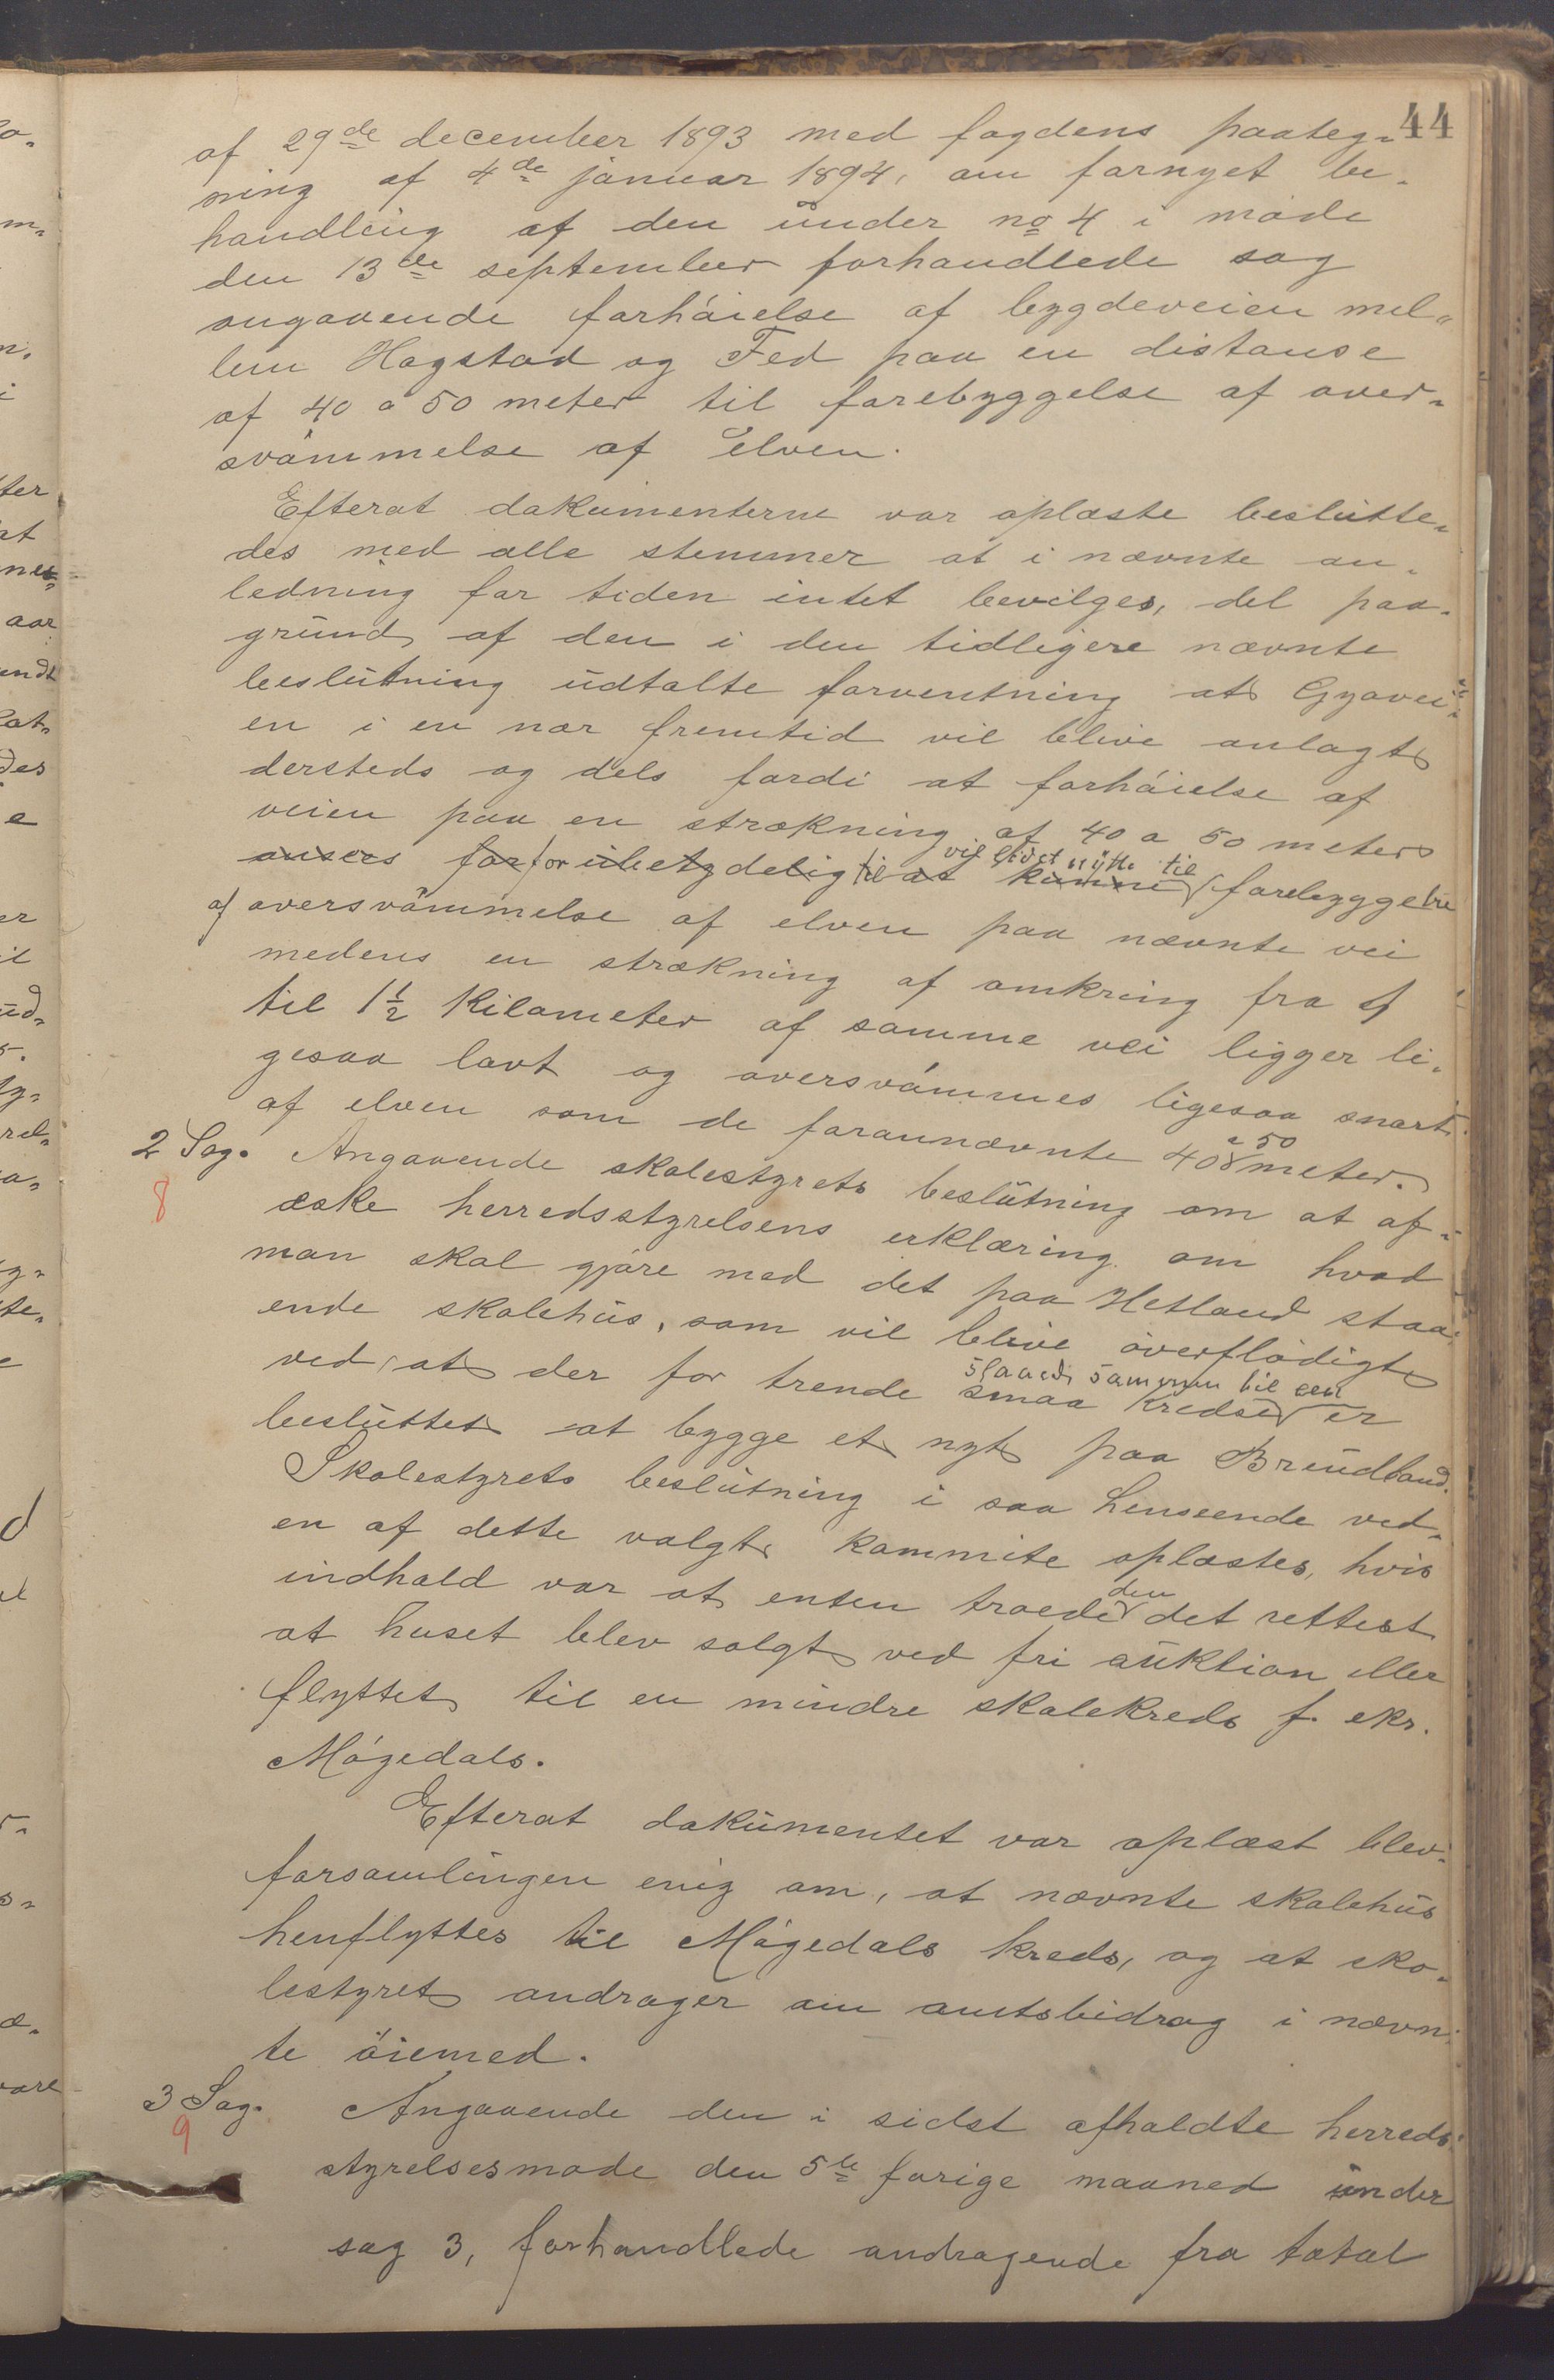 44
af 29de december 1893 med fogdens paateg-
ning af 4de januar 1894, om fornyet be-
handling af den under no 4 i møde
den 13de september forhandlede sag
angaaende forhøielse af bygdeveien mel-
lem Hogstad og Fed paa en distanse
af 40 a 50 meter til forebyggelse af over-
svømmelse af elven.
Efterat dokumenterne var oplæste beslutte-
des med alle stemmer at i nævnte an-
ledning for tiden intet bevilges, del paa
grund af den i den tidligere nævnte
beslutning udtalte forventning at Gyavei-
en i en nær fremtid vil blive anlagt
dersteds og dels fordi at forhøielse af
veien paa en strækning af 40 a 50 meter
vil lidet nytte til
ansees for for ubetydelig til at kunne forebyggelse
af oversvømmelse af elven paa nævnte vei
medens en strækning af omkring fra 1
til 1½ kilometer af samme vei ligger li-
gesaa lavt og oversvømmes ligesaa snart
af elven som de forannævnte 40 a 50 meter.
2 Sag. Angaaende skolestyrets beslutning om at af-
8
æske herredsstyrelsens erklæring om hvad
man skal gjøre med det paa Hetland staa-
ende skolehus, som vil blive overflødigt
ved at der for trende smaa kredse slaaede sammen til een er
besluttet at bygge et nyt paa Bruidland.
Skolestyrets beslutning i saa henseende ved-
en af dette valgt kommite oplæstes, hvis
indhold var at enten troede den det rettest
at huset blev solgt ved fri auktion eller
flyttet til en mindre skolekreds f. eks.
Møgedals.
Efterat dokumentet var oplæst blev
forsamlingen enig om, at nævnte skolehus
henflyttes til Møgedals kreds, og at sko-
lestyret andrager om amtsbidrag i nævn-
te øiemed.
3 Sag. Angaaende den i sidst afholdte herreds-
9
styrelsesmøde den 5te forige maaned under
sag 3, forhandlede andragende fra total